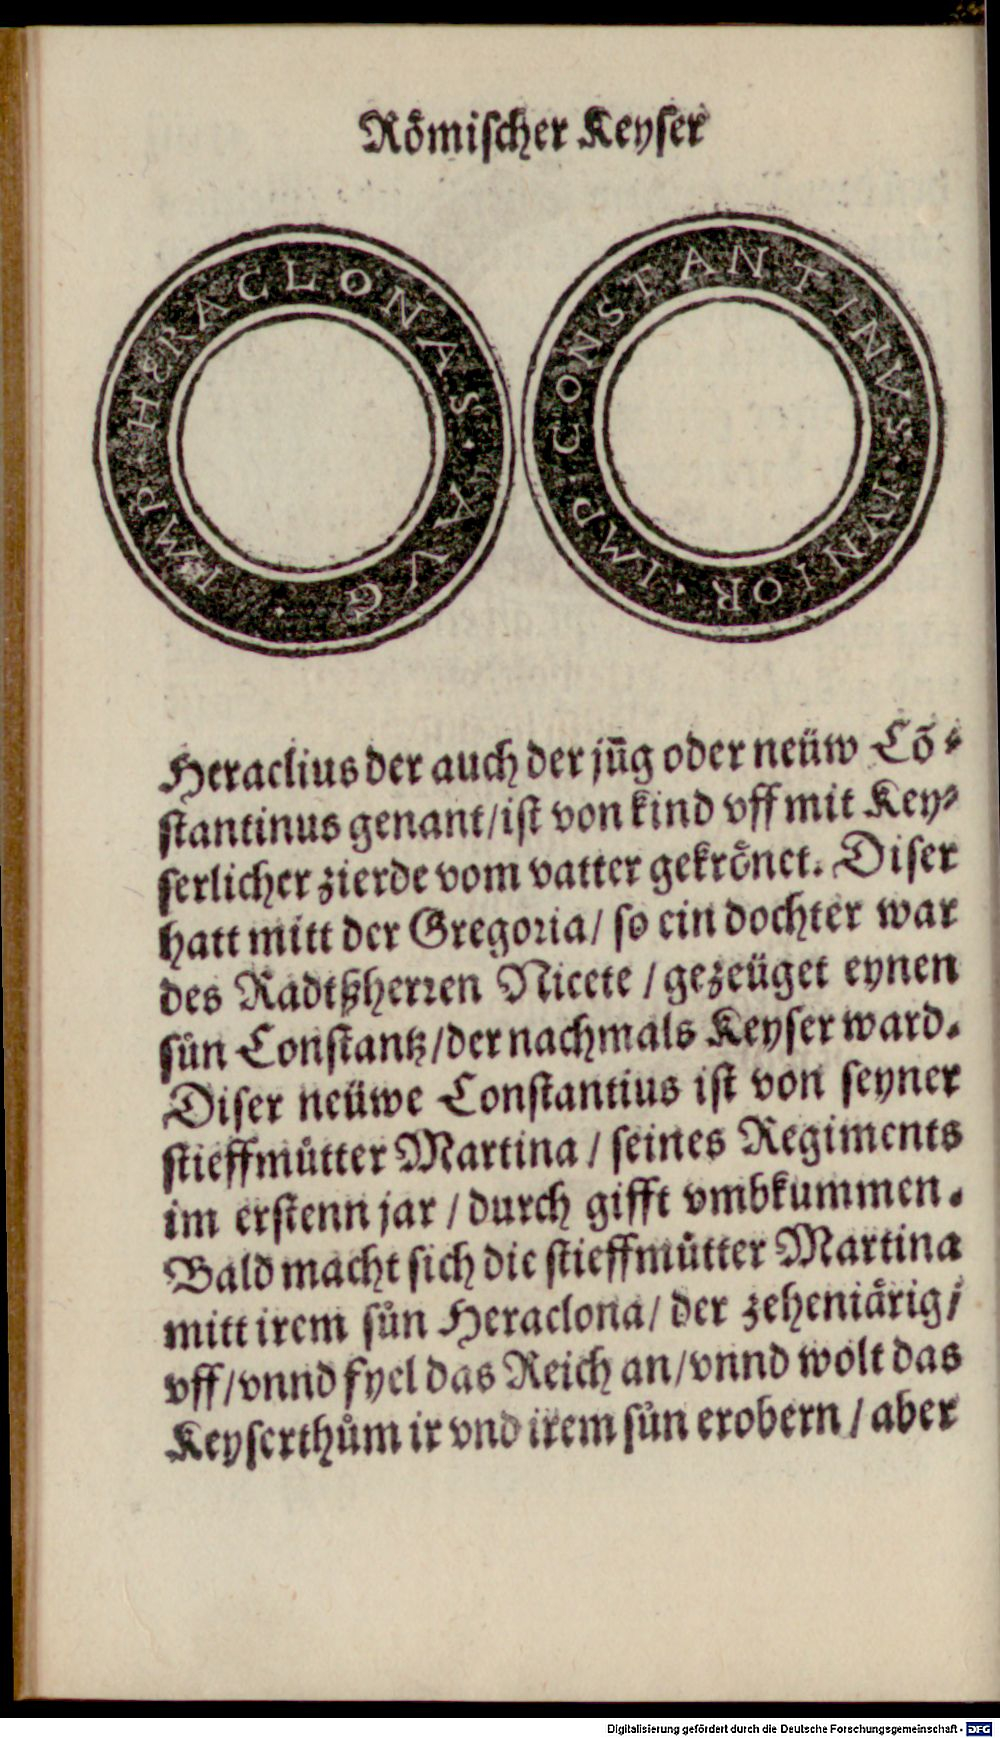 Roͤmiſcher Keyſer
IMP · HERACLONAS · AVG ·
CONSTANTINVS · IVNIOR · IMP ·
Heraclius der auch der jūg oder neüw Cō⸗
ſtantinus genant/iſt von kind vff mit Key⸗
ſerlicher zierde vom vatter gekroͤnet. Diſer
hatt mitt der Gregoꝛia/ ſo ein dochter war
des Radtßherꝛen Nicete /gezeüget eynen
ſuͤn Conſtantz/der nachmals Keyſer ward.
Diſer neüwe Conſtantius iſt von ſeyner
ſtieffmuͤtter Martina / ſeines Regiments
im erſtenn jar / durch gifft vmbkummen.
Bald macht ſich die ſtieffmuͤtter Martina
mitt irem ſuͤn Heraclona/ der zeheniaͤrig/
vff/vnnd fyel das Reich an/vnnd wolt das
Keyſerthuͦm ir vnd irem ſuͤn erobern / aber
Digitalisierung gefördert durch die Deutsche Forschungsgemeinschaft - DFG